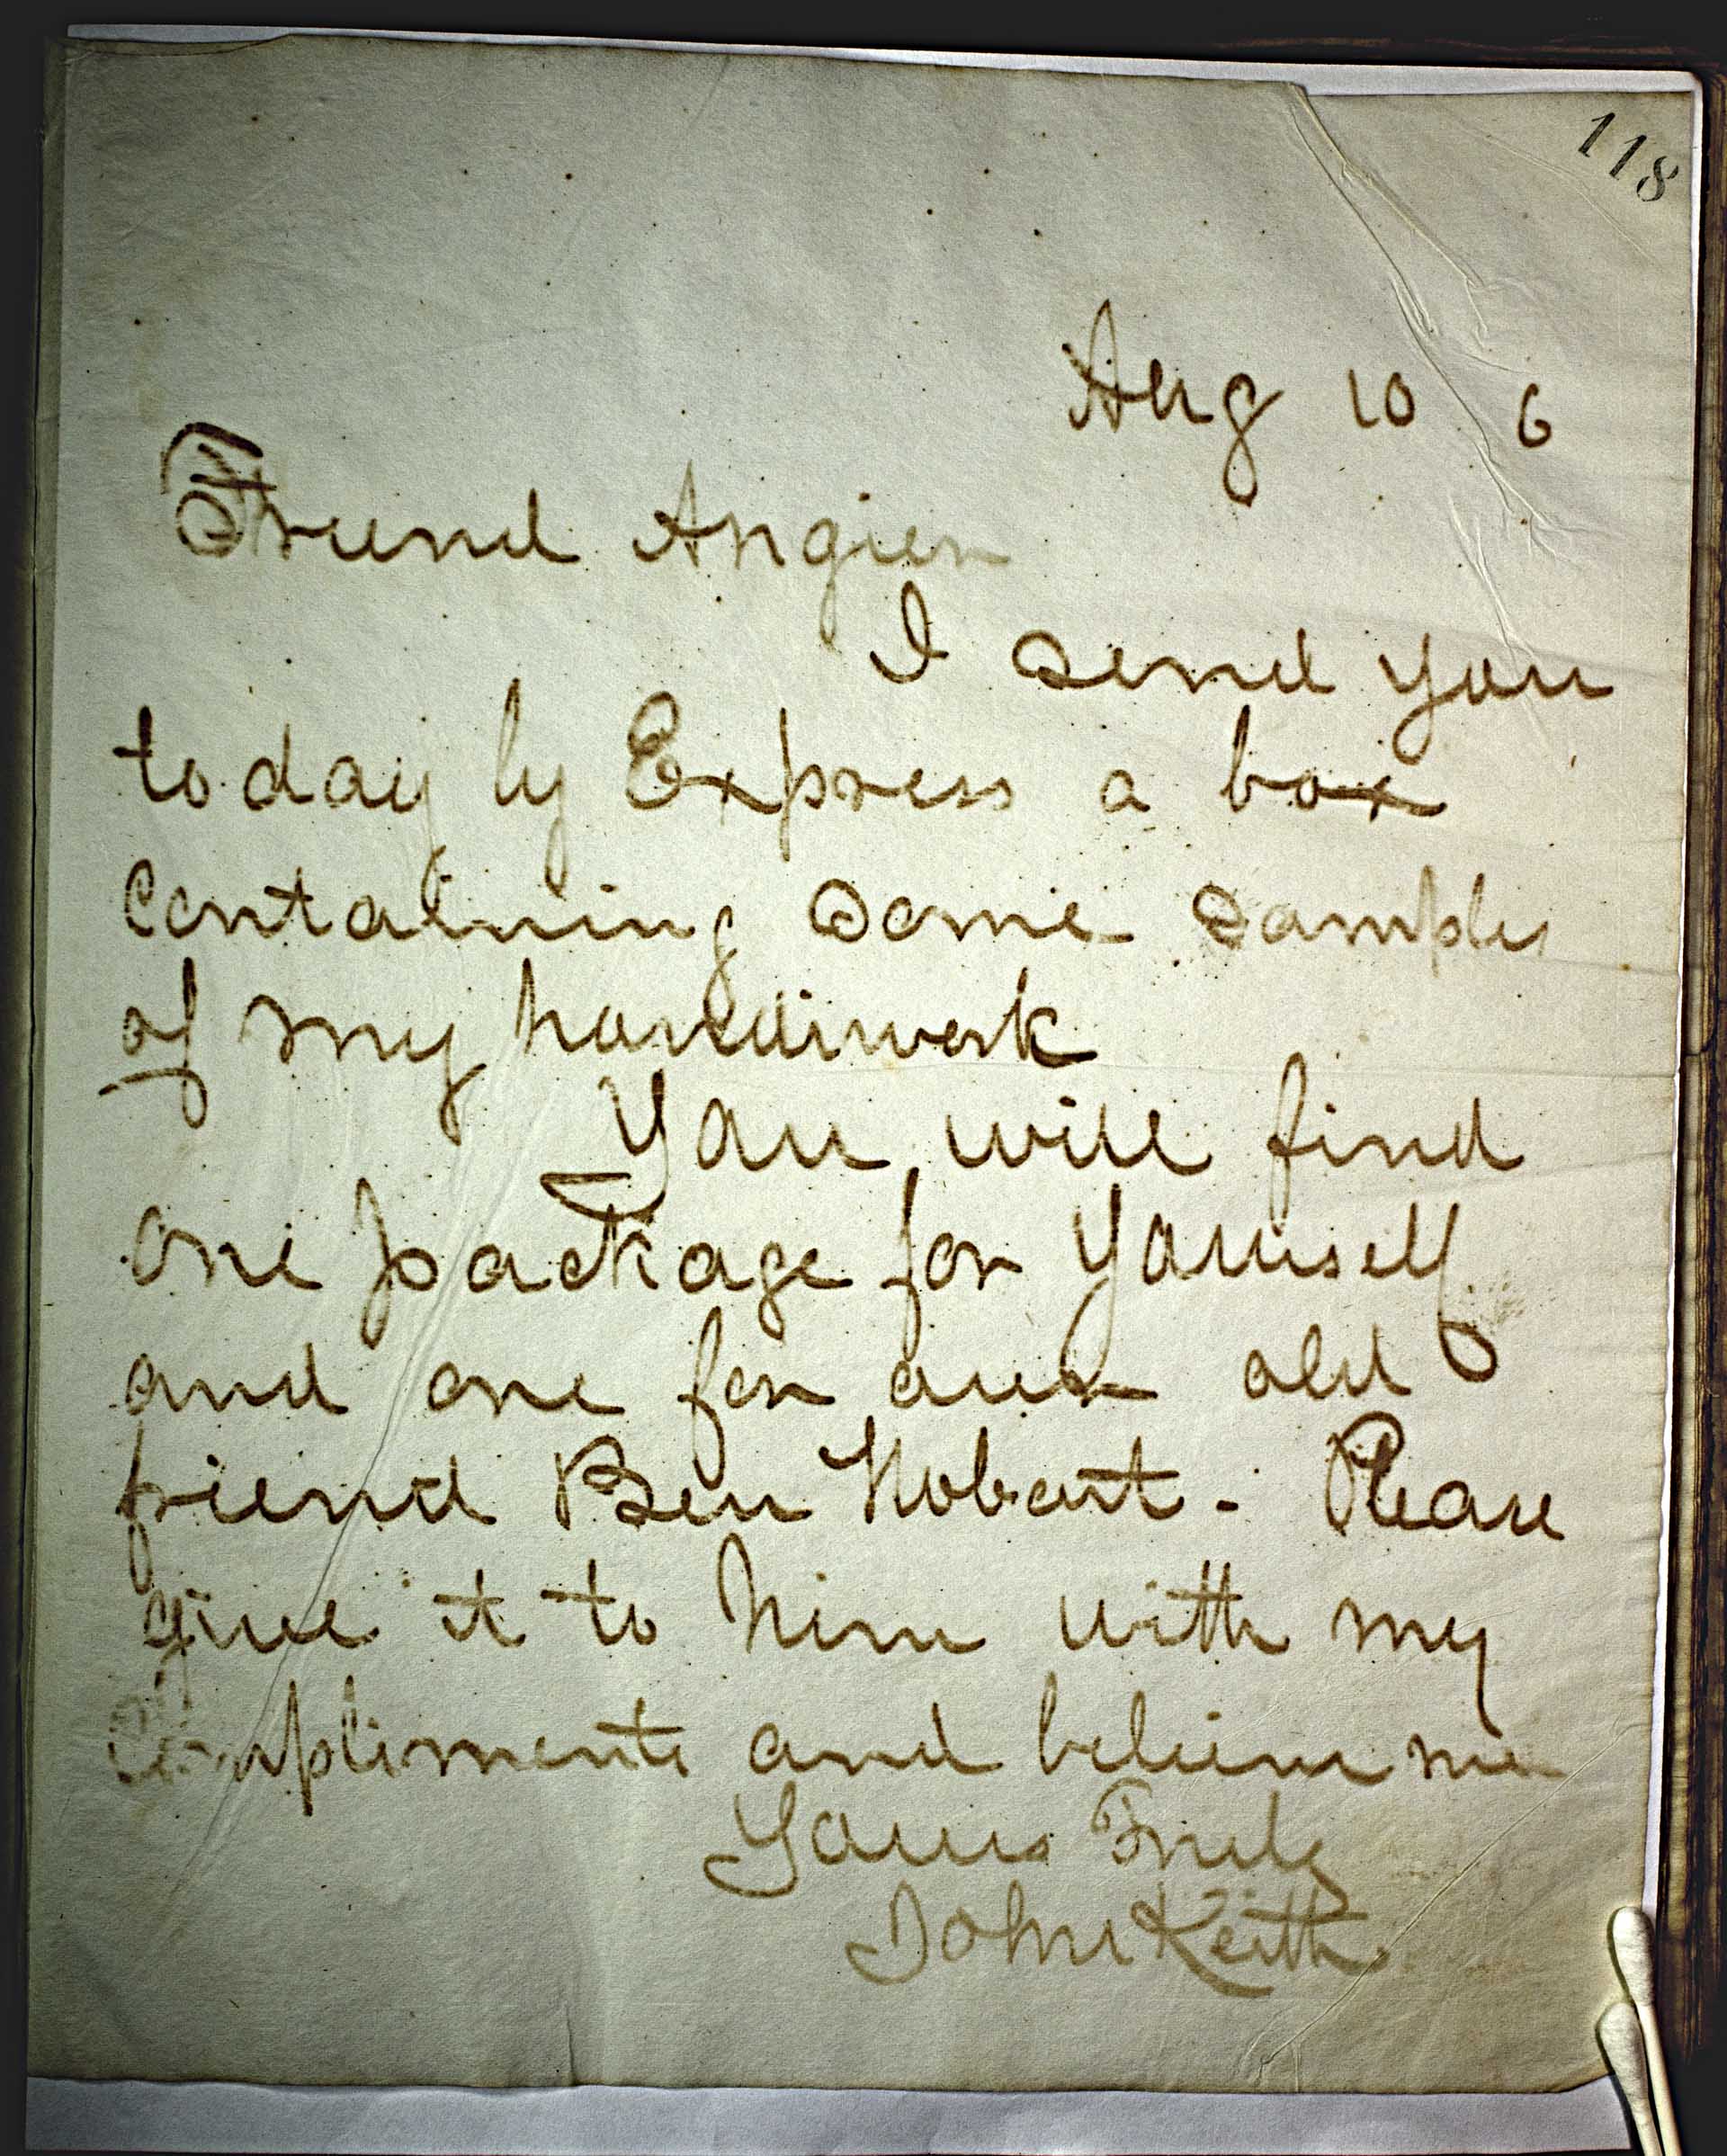 118
Aug 10 6
Friend Angier
I send you
to day by Express a box
Containing some samples
of my handiwork
You will find
one package for yourself
and one for our old
friend Ben Hobart - Please
give it to him with my
Compliments and believe me
Yours Truly
John Keith